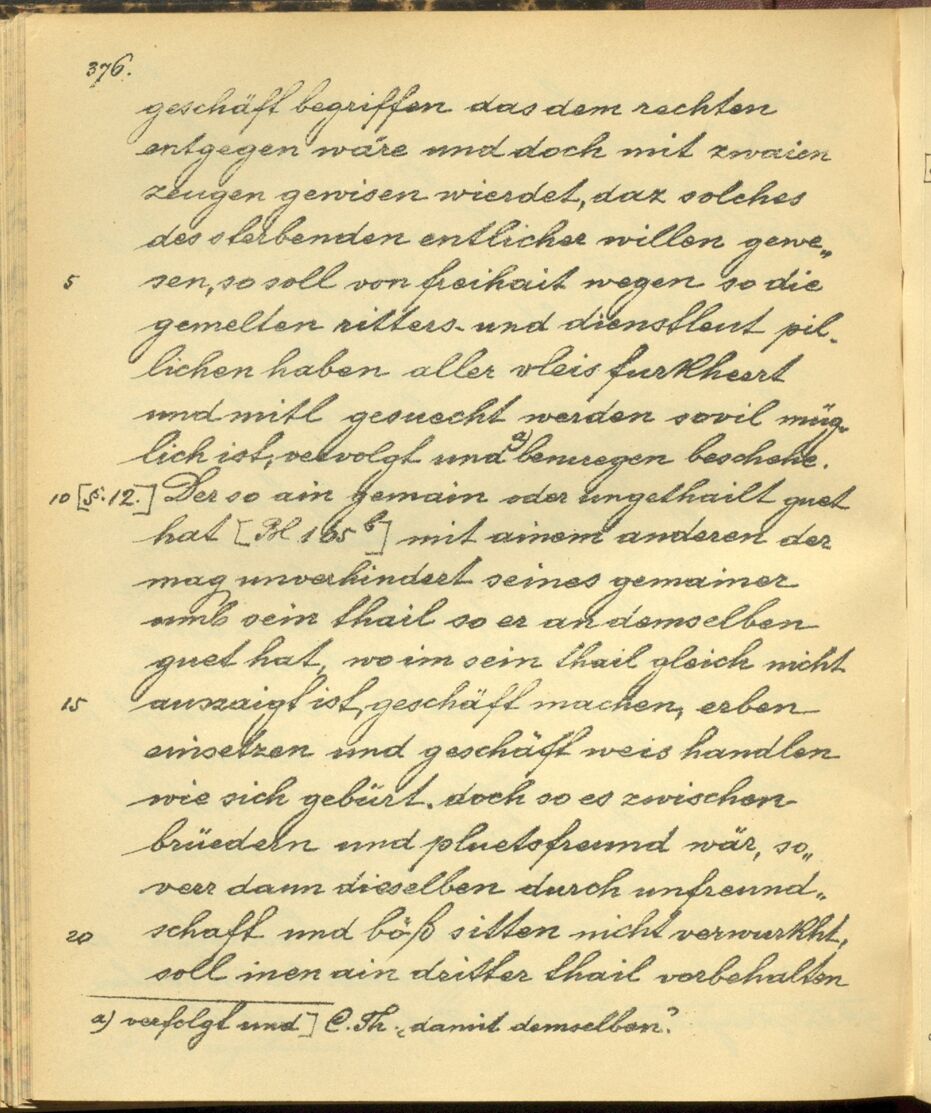 376.
geschäft begriffen das dem rechten
entgegen wäre und doch mit zwaien
zeugen gewisen wierdet, daz solches
des sterbenden entlicher willen gewe„
5 sen, so soll von freihait wegen so die
gemelten ritters- und dienstleut pil-
lichen haben aller vleis furkheert
und mitl gesuecht werden sovil müg-
lich ist, vervolgt und a) benuegen beschehe.
10 [§. 12.] Der so ain gemain oder ungethailt guet
hat [Bl 165 b] mit ainem anderen der
mag unverhindert seines gemainer
umb sein thail so er an demselben
guet hat, wo im sein thail gleich nicht
15 auszaigt ist, geschäft machen, erben
einsetzen und geschäft weis handlen
wie sich gebürt. doch so es zwischen
brüedern und pluetsfreund wär, so„
verr dann dieselben durch unfreund„
20 schaft und böß sitten nicht verwurkht,
soll inen ain dritter thail vorbehalten
a) verfolgt und] C. Th. „damit demselben?